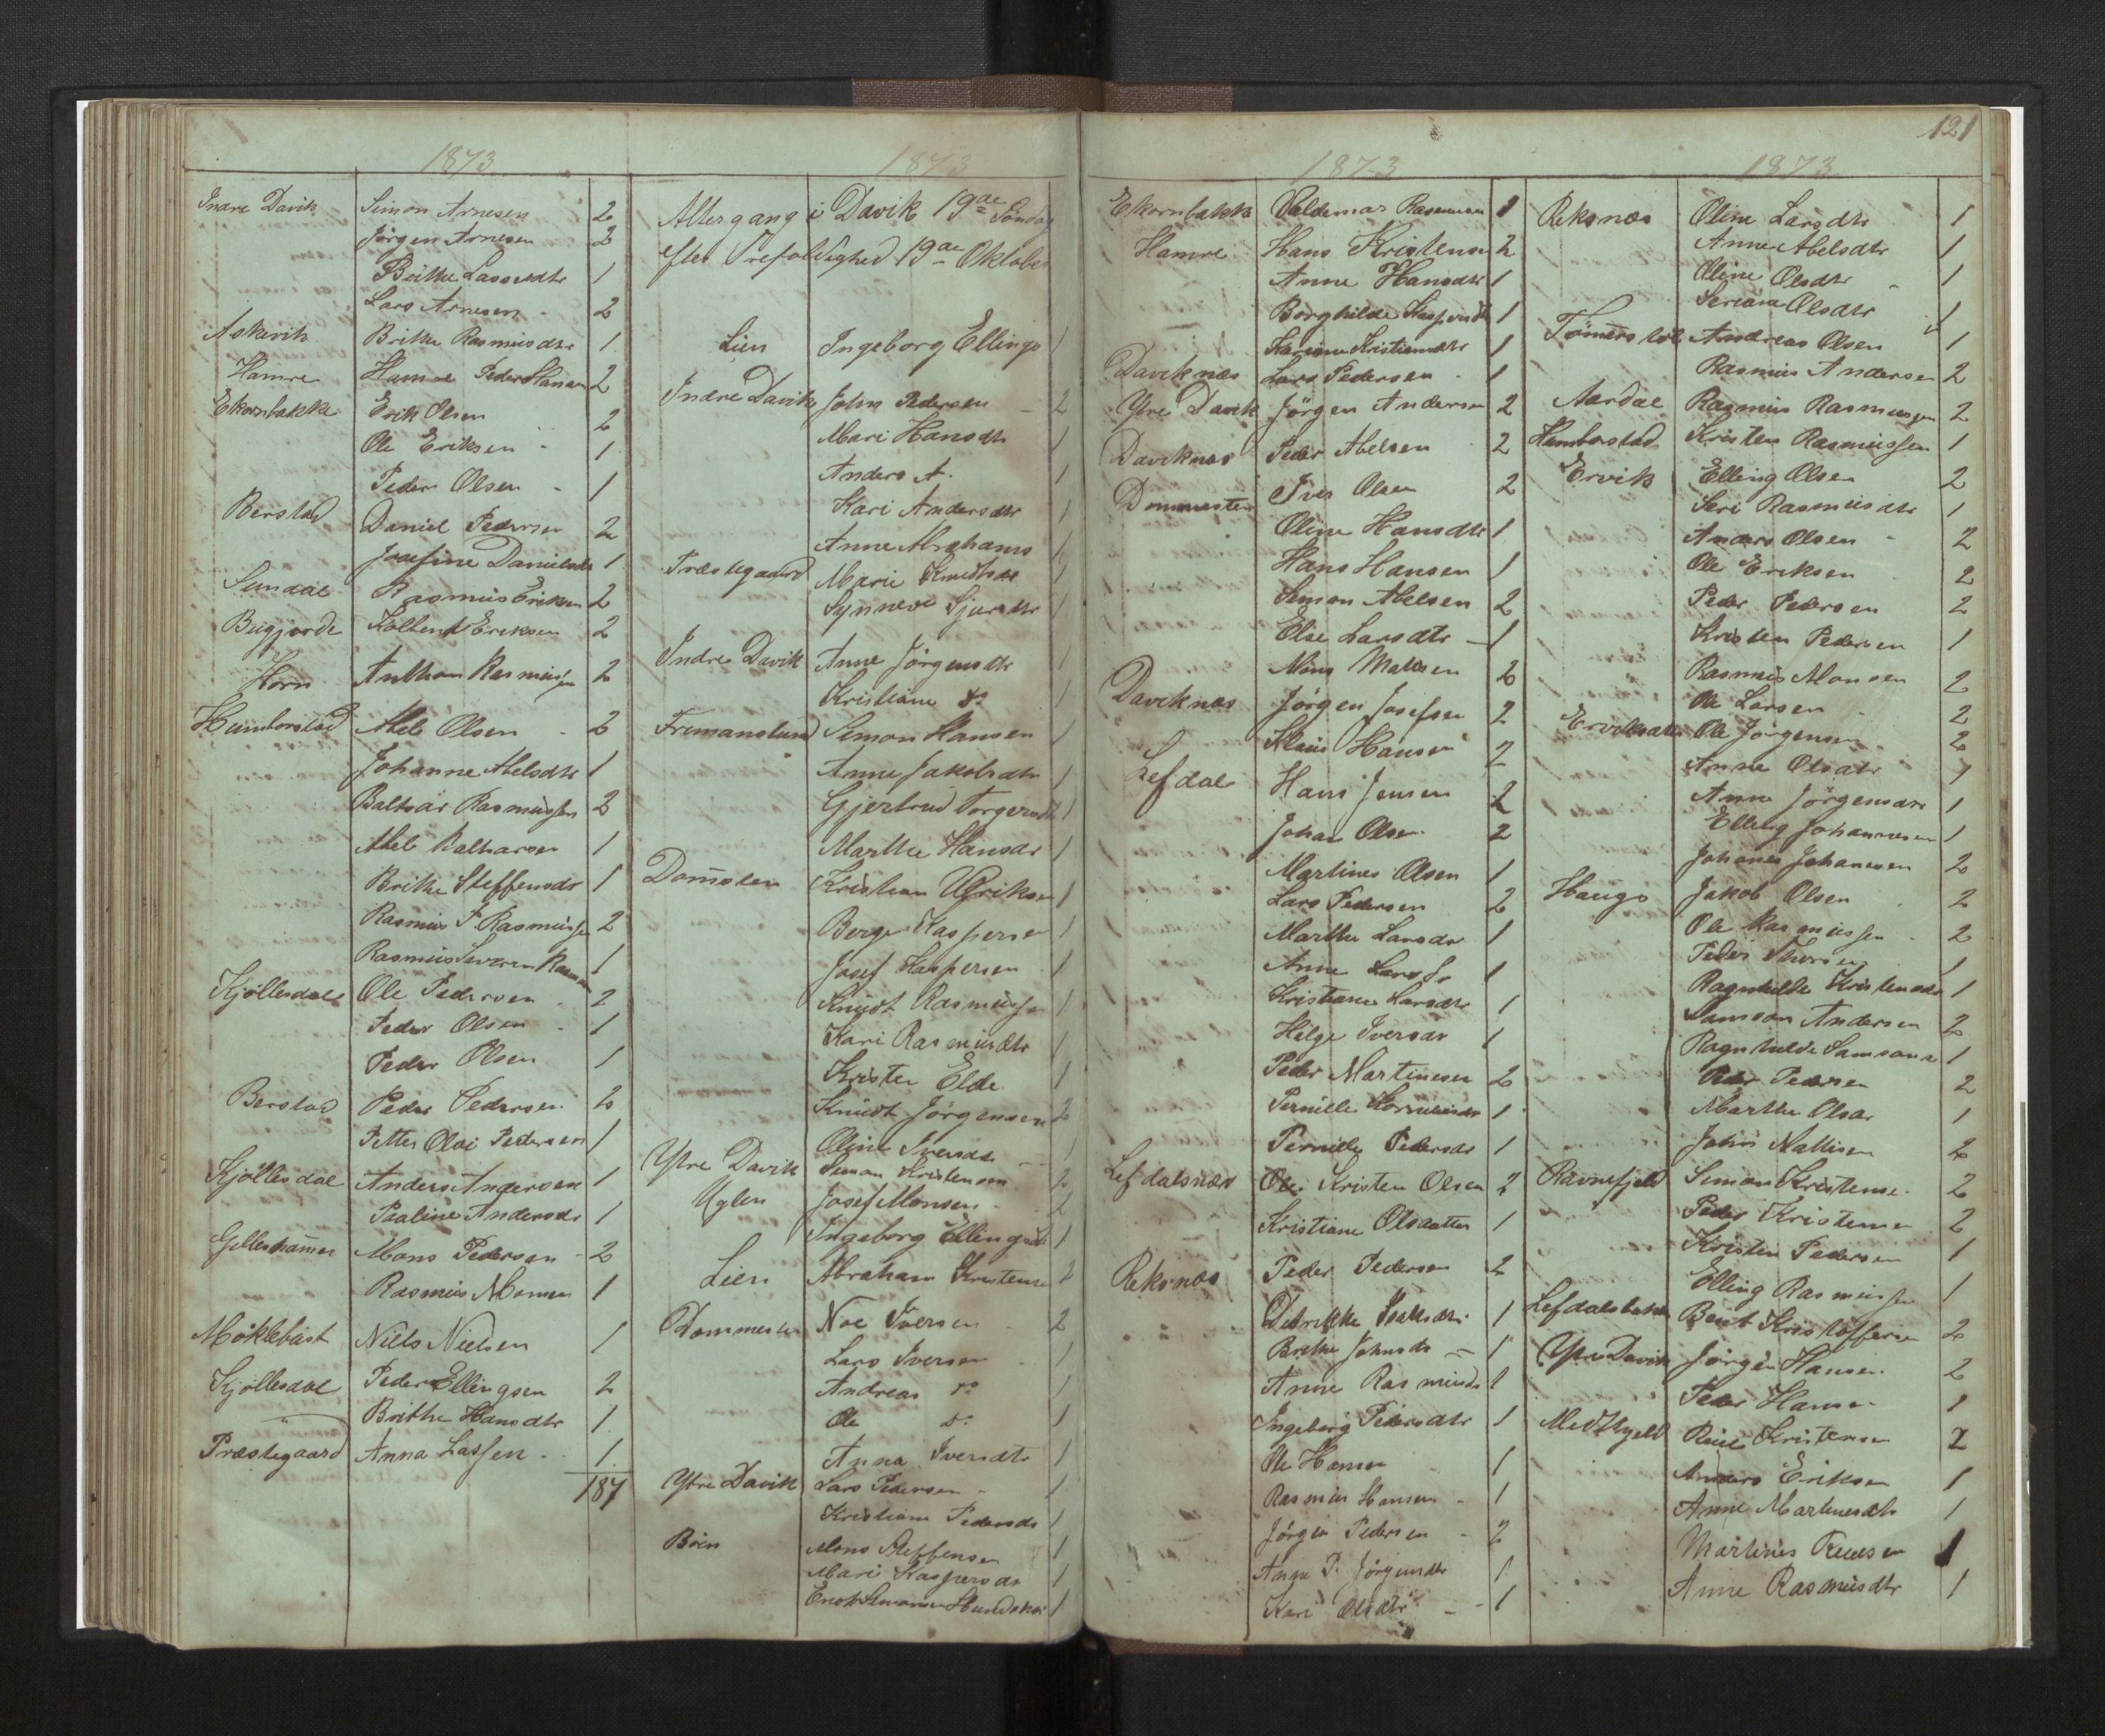 121
1873
Indre Davik Simon Arnesen 2
Jørgen Arnesen 2
Brithe Lassesdtr 1
Lars Arnesen - 2
Askevik Brithe Rasmusdtr 1
Hamre Hamre Peder Hansen 2
Ekornbakke Erik Olsen 2
Ole Eriksen - 1
Peder Olsen - 1
Berstad Daniel Pedersen 2
Josefine Danielsdtr 1
Sundal Rasmus Eriksen 2
Bugjorde Kolbend Eriksen 2
Horn Anthon Rasmussen 2
Humborstad Abel Olsen - 2
Johanne Abelsdtr 1
Baltsar Rasmussen 2
Abel Baltharsen 1
Brithe Steffensdr 1
Rasmus P. Rasmussen 2
Rasmus Severin Rasmussen 1
Kjøllesdal Ole Pedersen - 2
Peder Olsen - 1
Peder Olsen 1
Berstad Peder Pedersen 2
Petter Olai Pedersen 1
Kjøllesdal Anders Andersen 1
Pauline Andersdr 1
Gilleshamer Mons Pedersen - 2
Rasmus Monsen 1
Møklebust Niels Nielsen 1
Kjøllesdal Peder Ellingsen 2
" Brithe Hansdtr 1
Præstegaard Anna Lassen - 1
187
1873
Altergang i Davik 19de Søndag
efter Trefoldighed 19de Oktober
Lien Ingeborg Ellings 1
Indre Davik John Pedersen - 2
Mari Hansdtr 1
Anders A. 1
Kari Andersdtr 1
Anne Abrahams 1
Præstegaard Marie Knudtsdr 1
Synneve Sjursdtr 1
Indre Davik Anne Jørgensdtr 1
Kristiane do 1
Fremanslund Simon Hansen 1
Anne Jakobsdtr 1
Gjertrud Torgersdtr 1
Marthe Hansdr 1
Domsten Kristian Ulriksen 1
Berge Kaspersen 1
Josef Kaspersen 1
Knudt Rasmussen 1
Kari Rasmusdtr 1
Kristen Elde 1
Knudt Jørgensen 2
Oline Iversdr - 1
Ytre Davik Simon Kristensen 2
Uglen Josef Monsen - 2
Ingeborg Ellingsdtr 1
Lien Abraham Kristensen 2
Dommesten Noe Iversen - 2
Lars Iversen - 1
Andreas do 1
Ole do 1
Anna Iversdtr 1
Ytre Davik Lars Pedersen - 1
Kristiane Pedersdr 1
Böen Mons Steffensen 1
Mari Kaspersdr 1
Enok Simonsen 1
1873
Ekornbakke Valdemar Rasmussen 1
Hamre Hans Kristensen 2
Anne Hansdtr 1
Borghilde Kaspersdtr 1
Kariane Kristiansdtr 1
Daviknæs Lars Pedersen - 1
Ytre Davik Jörgen Andersen 2
Daviknæs Peder Abelsen 2
Dommesten Iver Olsen 2
Oline Hansdtr 1
Hans Hansen 1
Simon Abelsen 2
Else Larsdtr - 1
Mons Matsen 2
Daviknæs Jörgen Josefsen 2
Klaus Hansen 2
Lefdal Hans Jensen 2
Johan Olsen 2
Martines Olsen 1
Lars Pedersen 2
Marthe Larsdr 1
Anne Larsdr 1
Kristiane Larsdtr 1
Helge Iversdr 1
Peder Martinesen 2
Pernille Korneliusdr 1
Pernille Pedersdr 1
Lefdalsnæs Ole Kristen Olsen 2
Kristiane Olsdatter 1
Reksnæs Peder Pedersen 2
Didrikke Isaksdtr 1
Brithe Johnsdr - 1
Anne Rasmusdr 1
Ingeborg Pedersdtr 1
Ole Hansen - 1
Rasmus Hansen - 1
Jörgen Pedersen - 2
Anne P. Jörgensdtr 1
Kari Olsdtr - 1
1873
Reksnæs Oline Larsdtr 1
Anne Abelsdtr 1
Oline Olsdtr - 1
Seriane Olsdtr 1
Andreas Olsen 1
Rasmus Andersen 2
Aardal Rasmus Rasmussen 2
Humborstad Kristen Rasmussen 1
Ervik Elling Olsen 2
Seri Rasmusdtr 1
Anders Olsen - 2
Ole Eriksen 2
Peder Pedersen 2
Kristen Pedersen 1
Rasmus Monsen 2
Ole Larsen - 2
Ole Jörgensen 2
Anne Olsdtr 1
Anne Jörgensdtr 1
Elling Johannesen 1
Johanes Johanesen 2
Hauge Jakob Olsen 2
Ole Rasmussen - 2
Peder Thorsen 1
Ragnhilde Kristensdr 1
Samson Andersen 2
Ragnhilde Samsons 1
Peder Pedersen 2
Marthe Olsdr 1
John Nathisen 2
Ravnefjeld Simon Kristensen 2
Peder Kristensen 2
Kristen Pedersen 1
Elling Rasmussen 1
Lefdalsbakke Berit Kristoffersen 2
Ytre Davik Jörgen Hansen 2
Peder Hansen 1
Midthjeld Kristensen 2
Anders Eriksen 1
Anne Martinesdtr 1
Martines 1
Anne Rasmusdtr 1